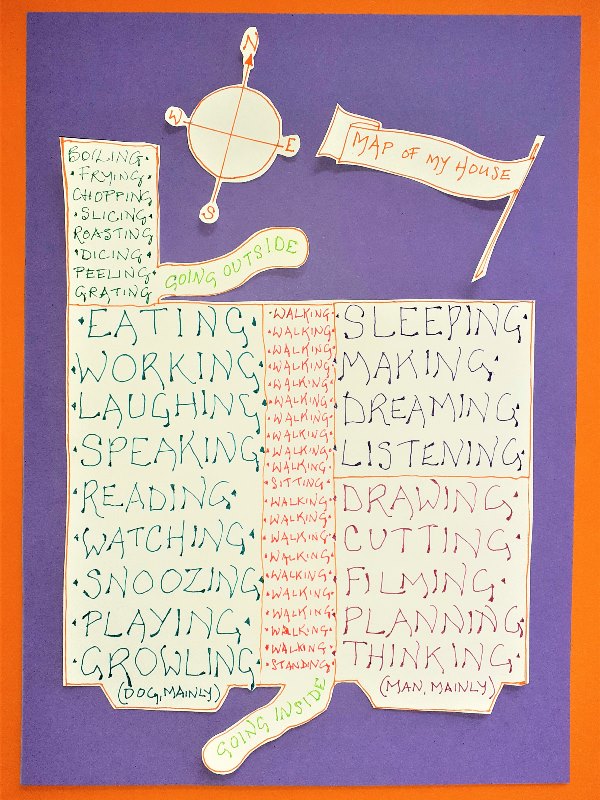 N
W
E
S
MAP OF MY HOUSE
BOILING
FRYING
CHOPPING
SLICING
ROASTING
DICING
PEELING
GRATING
GOING OUTSIDE
EATING
WORKING
LAUGHING
SPEAKING
READING
WATCHING
SNOOZING
PLAYING
GROWLING
(DOG, MAINLY)
WALKING
WALKING
WALKING
WALKING
WALKING
WALKING
WALKING
WALKING
WALKING
WALKING
SITTING
WALKING
WALKING
WALKING
WALKING
WALKING
WALKING
WALKING
WALKING
WALKING
STANDING
GOING INSIDE
SLEEPING
MAKING
DREAMING
LISTENING
DRAWING
CUTTING
FILMING
PLANNING
THINKING
(MAN, MAINLY)